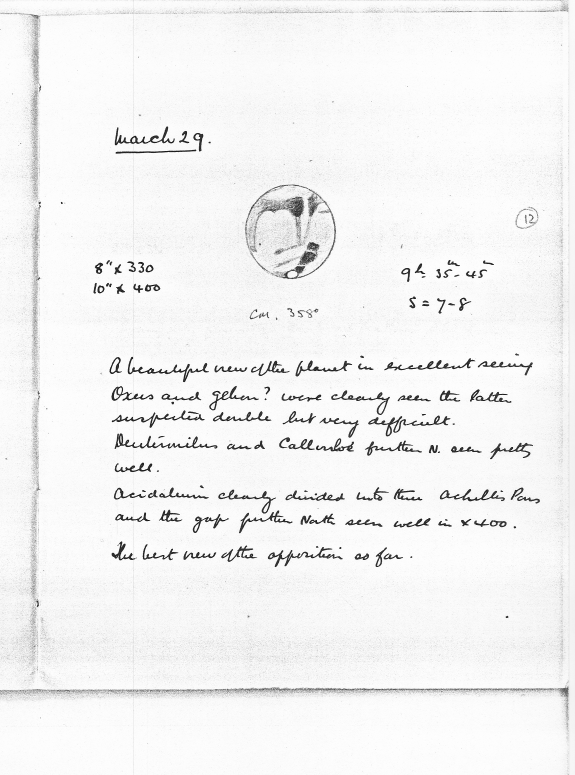 March 29.
12
8" x 330
10" x 400
9h 35m - 45m
S = 7-8
Cm. 358°
A beautiful view of the planet in excellent seeing
Oxus and Gehon? were clearly seen the latter
suspected double but very difficult.
Deuteronilus and Callirrhoe further N. seen pretty
well.
Acidalium clearly divided into three Achillis Pons
and the gap further North seen well in x 400.
The best view of the opposition so far.